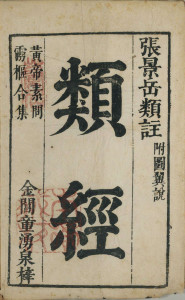 張景岳類註
附圖翼說
類經
黃帝素問
靈樞合集
金閶童湧泉梓